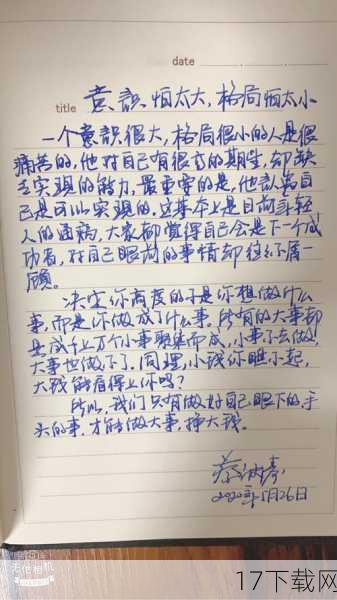 date
title 意识怕太大,格局怕太小
一个意识很大,格局很小的人是很
痛苦的,他对自己有很高的期望,却缺
乏实现的能力,最重要的是,他认为自
己是可以实现的,这基本上是目前年轻
人的通病,大家都觉得自己会是下一个成
功者,对自己眼前的事情却往往不屑一
顾。
决定你高度的不是你想做什么
事,而是你做成了什么事。所有的大事都
是成千上万个小事聚集而成,小事不去做,
大事也做不了。同理,小钱你瞧不起,
大钱能看得上你吗?
所以,我们只有做好自己眼下的手
头的事,才能做大事,挣大钱。
2020年5月26日
无他相机
17下载网